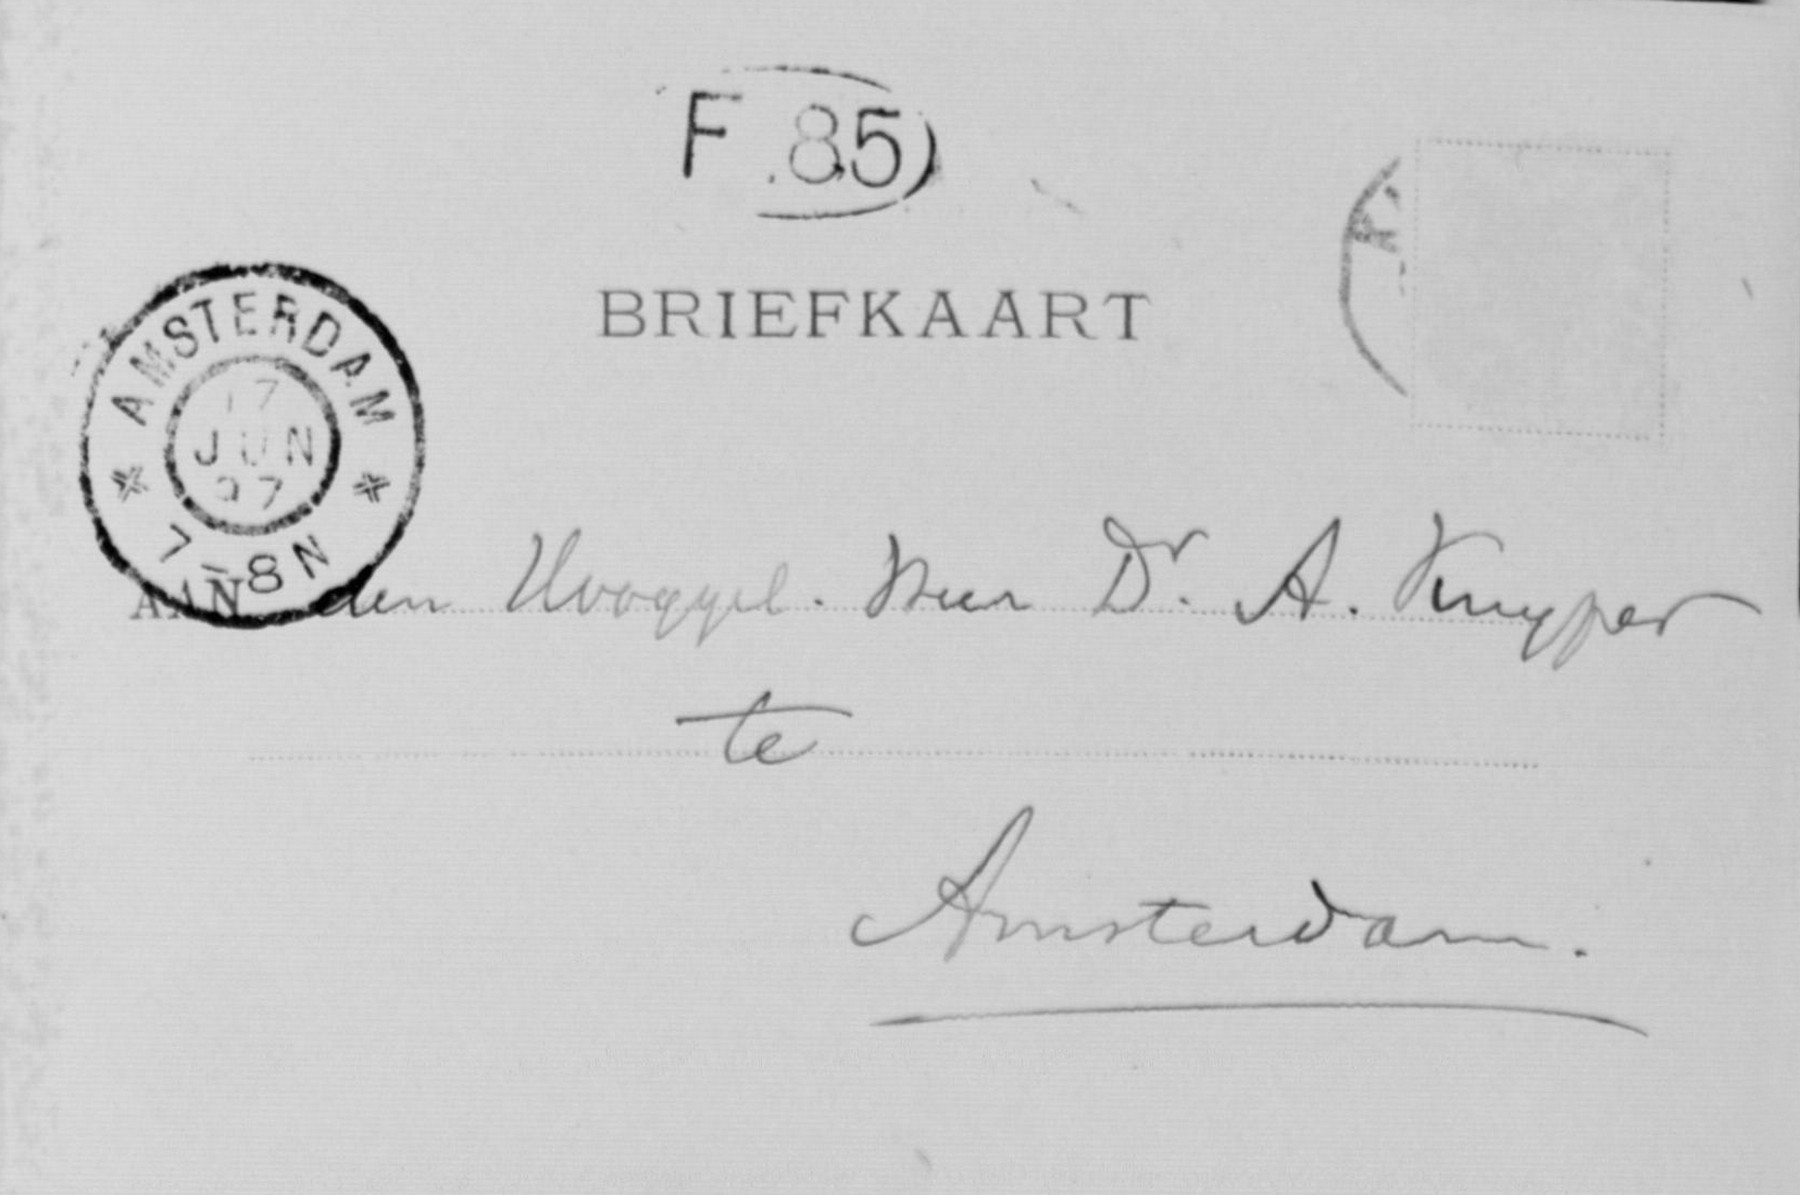 F 85
BRIEFKAART
AMSTERDAM
17
JUN
97
7-8N
AAN den Hooggel. Heer Dr. A. Kuyper
te
Amsterdam.